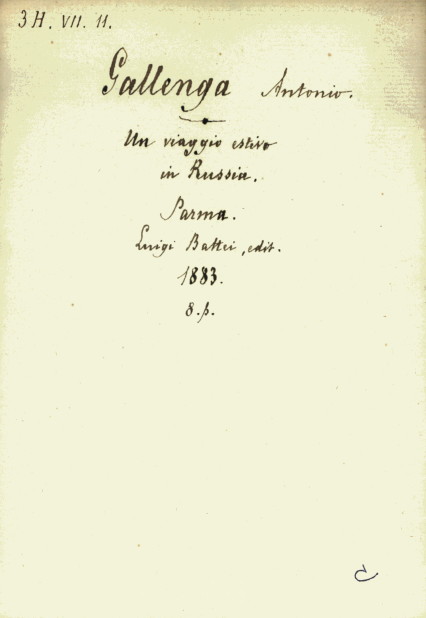 3H. VII. 11.
Gallenga Antonio.
Un viaggio estivo
in Russia.
Parma.
Luigi Battei, edit.
1883.
8.p.